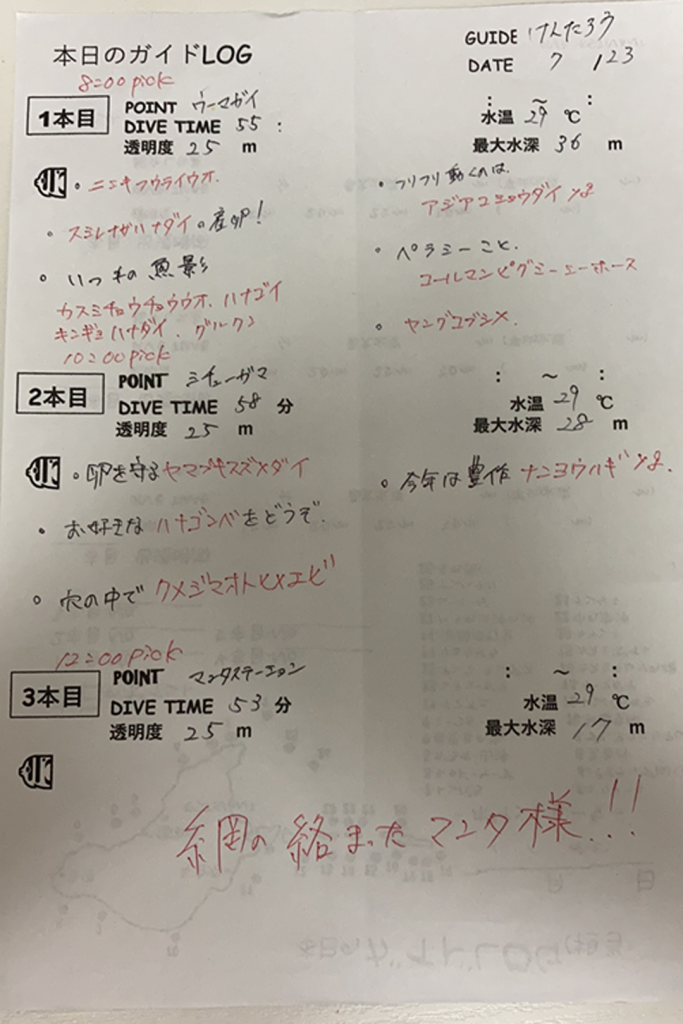 本日のガイドLOG
GUIDE けんたろう
DATE 7 /23
8:00 pick
1本目
POINT ウーマガイ
DIVE TIME 55 :
透明度 25 m
: ~ :
水温 29 ℃
最大水深 36 m
・ニシキフウライウオ.
・スミレナガハナダイの産卵!
・いつもの魚影
カスミチョウチョウウオ、ハナゴイ
キンギョハナダイ、グルクン
・フリフリ動くのは、
アジアコショウダイyg
・ペラミーこと、
コールマンピグミーシーホース
・ヤングコブシメ.
10:00 pick
2本目
POINT ミチューガマ
DIVE TIME 58 分
透明度 25 m
: ~ :
水温 29 ℃
最大水深 28 m
・卵を守るヤマブキスズメダイ
・お好きなハナゴンベをどうぞ
・穴の中でクメジマオトヒメエビ
・今年は豊作ナンヨウハギyg.
12:00 pick
3本目
POINT マンタステーション
DIVE TIME 53 分
透明度 25 m
: ~ :
水温 29 ℃
最大水深 17 m
網の絡まったマンタ様!!!